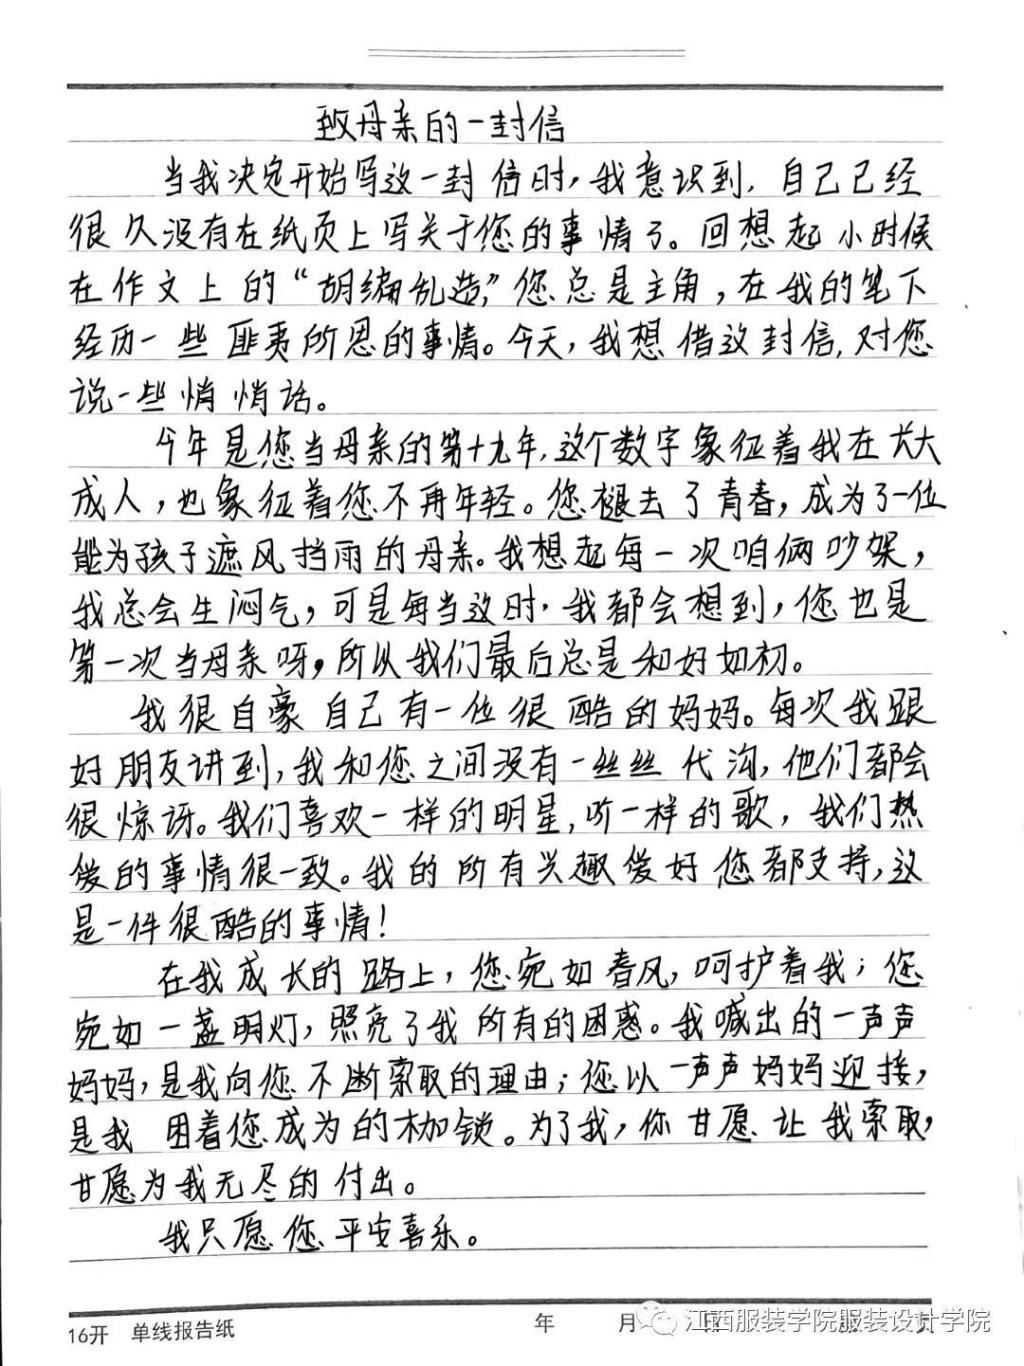 致母亲的一封信
当我决定开始写这一封信时，我意识到，自己已经
很久没有在纸页上写关于您的事情了。回想起小时候
在作文上的“胡编乱造”，您总是主角，在我的笔下
经历一些匪夷所思的事情。今天，我想借这封信，对您
说一些悄悄话。
今年是您当母亲的第十九年，这个数字象征着我在长大
成人，也象征着您不再年轻。您褪去了青春，成为了一位
能为孩子遮风挡雨的母亲。我想起每一次咱俩吵架，
我总会生闷气，可是每当这时，我都会想到，您也是
第一次当母亲呀，所以我们最后总是和好如初。
我很自豪自己有一位很酷的妈妈。每次我跟
好朋友讲到，我和您之间没有一丝丝代沟，他们都会
很惊讶。我们喜欢一样的明星，听一样的歌，我们热
爱的事情很一致。我的所有兴趣爱好您都支持，这
是一件很酷的事情！
在我成长的路上，您宛如春风，呵护着我；您
宛如一盏明灯，照亮了我所有的困惑。我喊出的一声声
妈妈，是我向您不断索取的理由；您以一声声妈妈迎接，
是我困着您成为的枷锁。为了我，你甘愿让我索取，
甘愿为我无尽的付出。
我只愿您平安喜乐。
16开 单线报告纸 年 月 日
江西服装学院服装设计学院